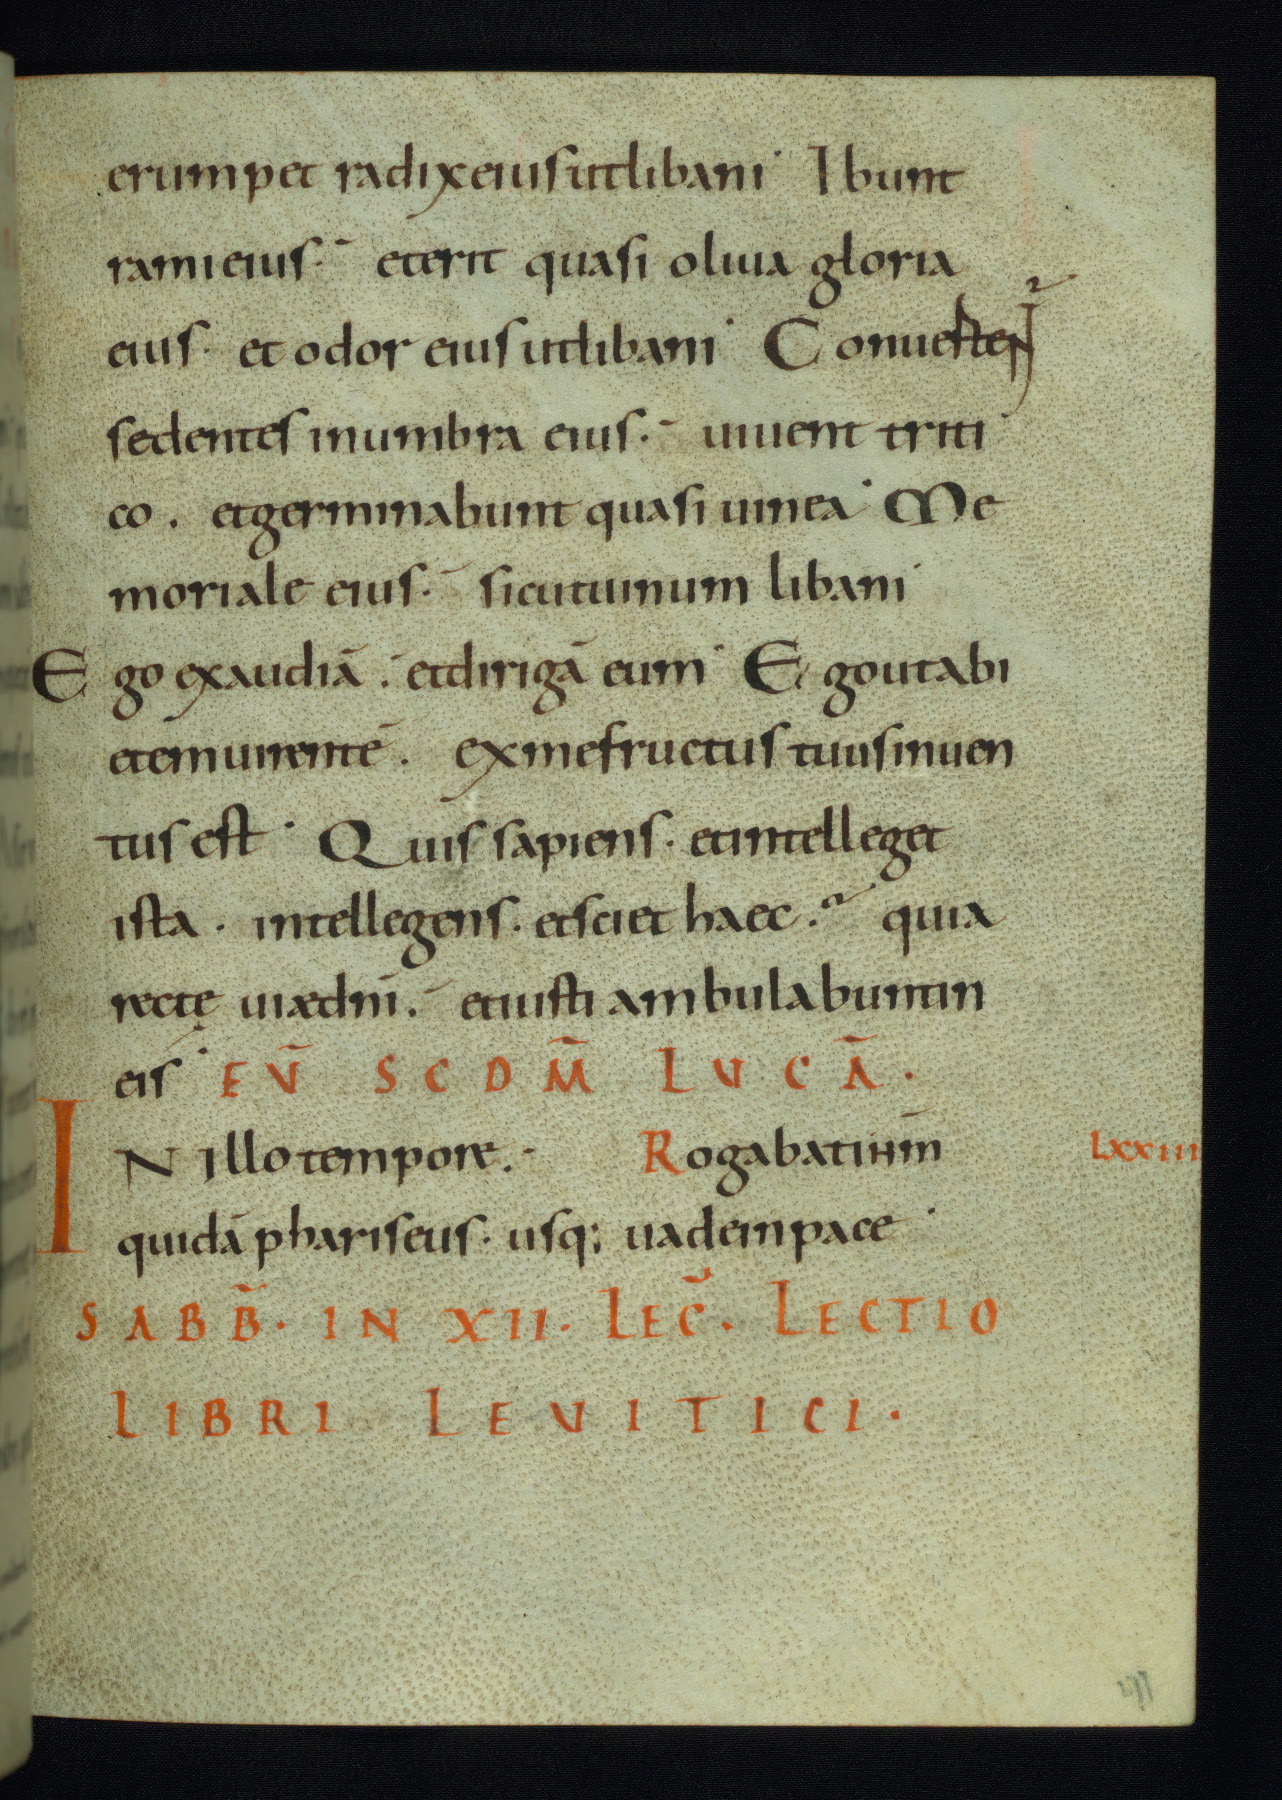 erumpet radix eius ut libani· Ibunt
rami eius·̄ et erit quasi oliua gloria
eius· et odor eius ut libani· Conuerten
sedentes in umbra eius·̄ uiuent triti
co. et germinabunt quasi uinea· Me
moriale eius·̄ sicut uinum libani·
Ego exaudiā. et dirigā eum· Ego ut abi
etem uirentē. ex me fructus tuus inuen
tus est· Quis sapiens· et intelleget
ista· intellegens· et sciet haec. quia
rectę uiæ dn̄i. et iusti ambulabunt in
eis· EV̄ SCDM̄ LVCĀ·
IN Illo tempore. Rogabat ihm̄
LXXIII
quidā phariseus· usq; uade in pace·
SABB̄· IN XII· LEC̄. LECTIO
LIBRI LEVITICI·